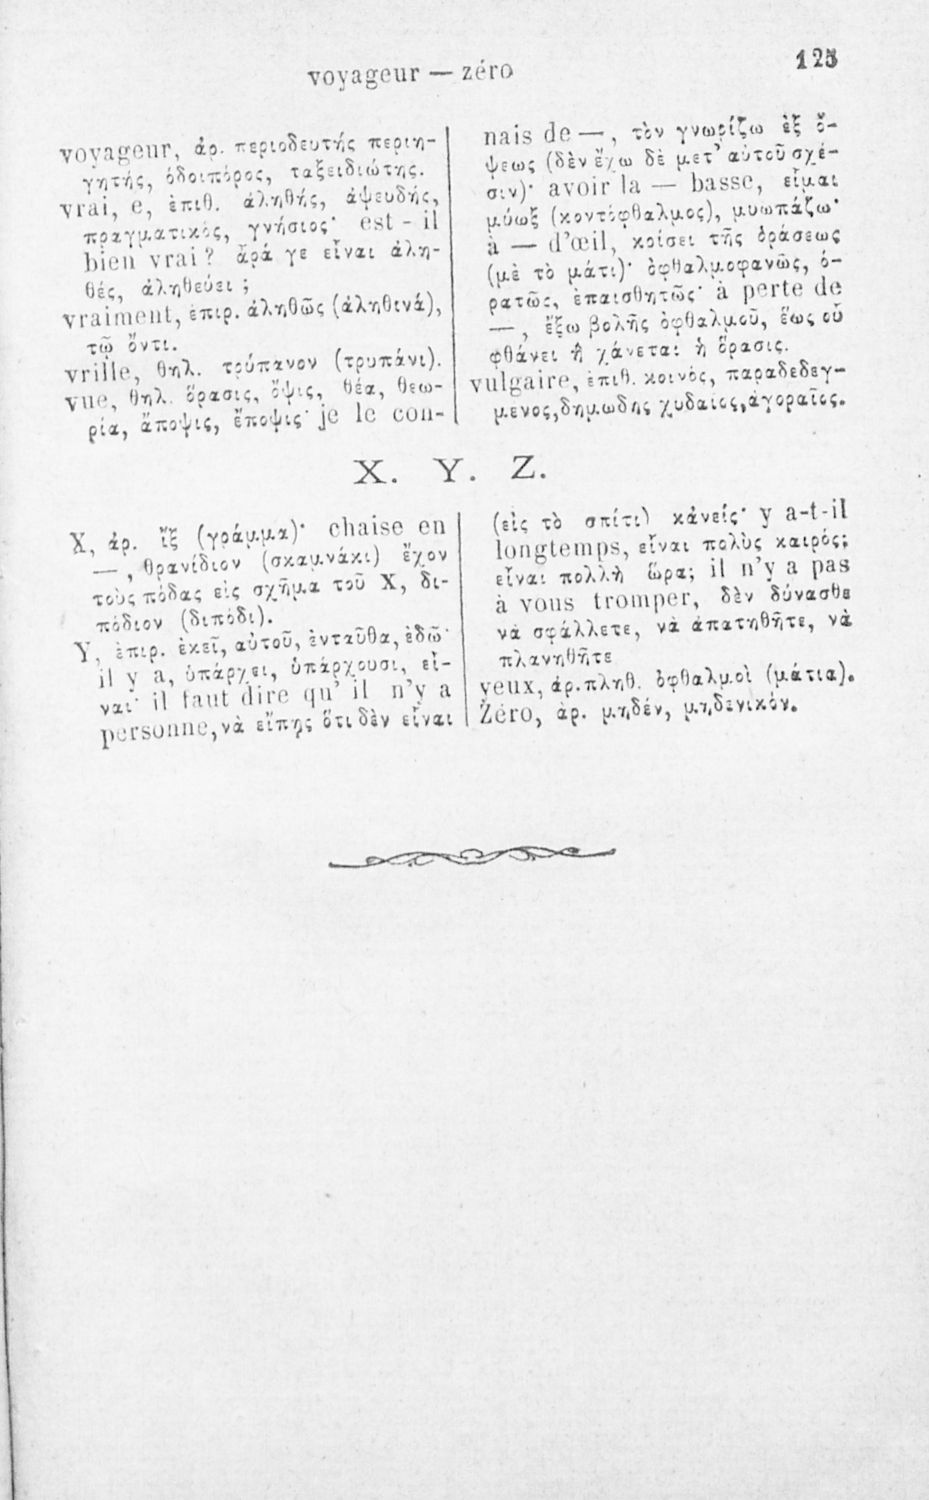 voyageur — zéro
125
voyageur, ἀρ. περιοδευτής περιη-
γητής, ὁδοιπόρος, ταξειδιώτης.
vrai, e, ἐπιθ. ἀληθής, ἀψευδής,
πραγματικός, γνήσιος· est - il
bien vrai? ἆρά γε εἶναι ἀλη-
θές, ἀληθεύει ;
vraiment, ἐπιρ. ἀληθῶς (ἀληθινά),
τῷ ὄντι.
vrille, θηλ. τρύπανον (τρυπάνι).
vue, θηλ. ὅρασις, ὄψις, θέα, θεω-
ρία, ἄποψις, ἔποψις· je le con-
nais de — , τὸν γνωρίζω ἐξ ὄ-
ψεως (δὲν ἔχω δὲ μετ' αὐτοῦ σχέ-
σιν)· avoir la — basse, εἶμαι
μύωξ (κοντόφθαλμος), μυωπάζω·
à — d'œil, κρίσει τῆς ὁράσεως
(μὲ τὸ μάτι)· ὀφθαλμοφανῶς, ὁ-
ρατῶς, ἐπαισθητῶς· à perte de
— , ἔξω βολῆς ὀφθαλμοῦ, ἕως οὗ
φθάνει ἢ χάνεται ἡ ὅρασις.
vulgaire, ἐπιθ. κοινός, παραδεδεγ-
μενος, δημωδης χυδαίος, ἀγοραῖος.
X. Y. Z.
X, ἀρ. ἲξ (γράμμα)· chaise en
— , θρανίδιον (σκαμνάκι) ἔχον
τοὺς πόδας εἰς σχῆμα τοῦ X, δι-
πόδιον (διπόδι).
Y, ἐπιρ. ἐκεῖ, αὐτοῦ, ἐνταῦθα, ἐδῶ·
il y a, ὑπάρχει, ὑπάρχουσι, εἶ-
ναι· il faut dire qu' il n'y a
personne, νὰ εἴπῃς ὅτι δὲν εἶναι
(εἰς τὸ σπίτι) κάνείς· y a-t-il
longtemps, εἶναι πολὺς καιρός;
εἶναι πολλὴ ὥρα; il n'y a pas
à vous tromper, δὲν δύνασθε
νὰ σφάλλετε, νὰ ἀπατηθῆτε, νὰ
πλανηθῆτε
yeux, ἀρ. πληθ. ὀφθαλμοὶ (μάτια).
Zéro, ἀρ. μηδέν, μηδενικόν.